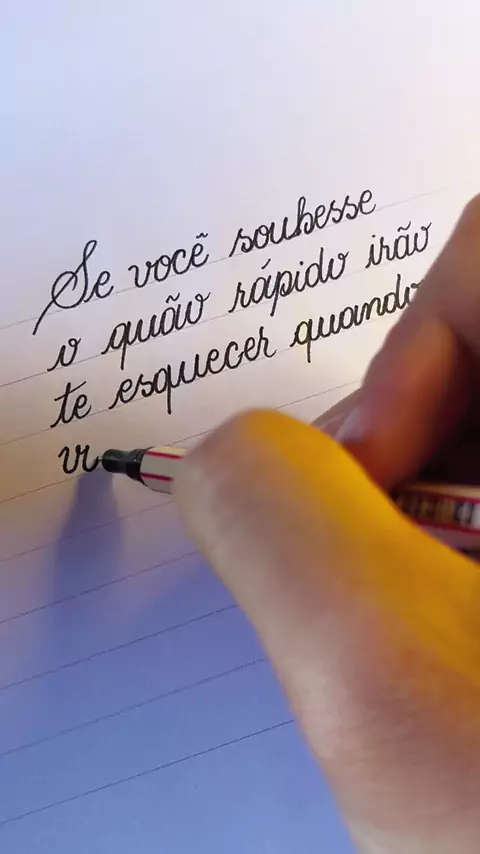 Se você soubesse
o quão rápido irão
te esquecer quando